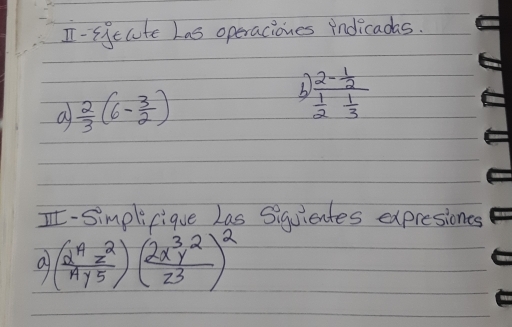 II-Ejecute Las operaciones indicadas.
a) 2/3 (6 - 3/2)
b) (2 - 1/2) / (1/2 1/3)
III-Simplifique Las Siguientes expresiones
a) (2^A z^2 / Ay5) (2x^3y^2 / z3)^2